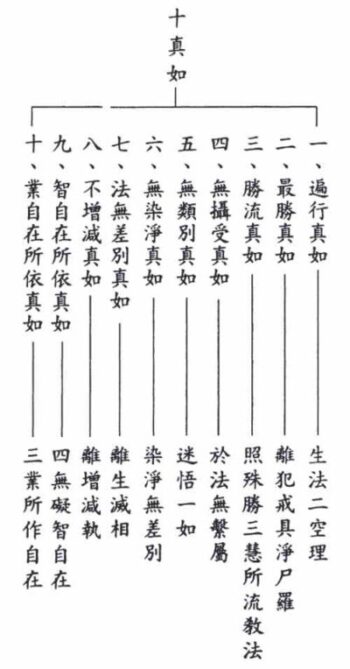 十真如
一、遍行真如
生法二空理
二、最勝真如
離犯戒具淨尸羅
三、勝流真如
照殊勝三慧所流教法
四、無攝受真如
於法無繫屬
五、無類別真如
迷悟一如
六、無染淨真如
染淨無差別
七、法無差別真如
離生滅相
八、不增減真如
離增減執
九、智自在所依真如
四無礙智自在
十、業自在所依真如
三業所作自在